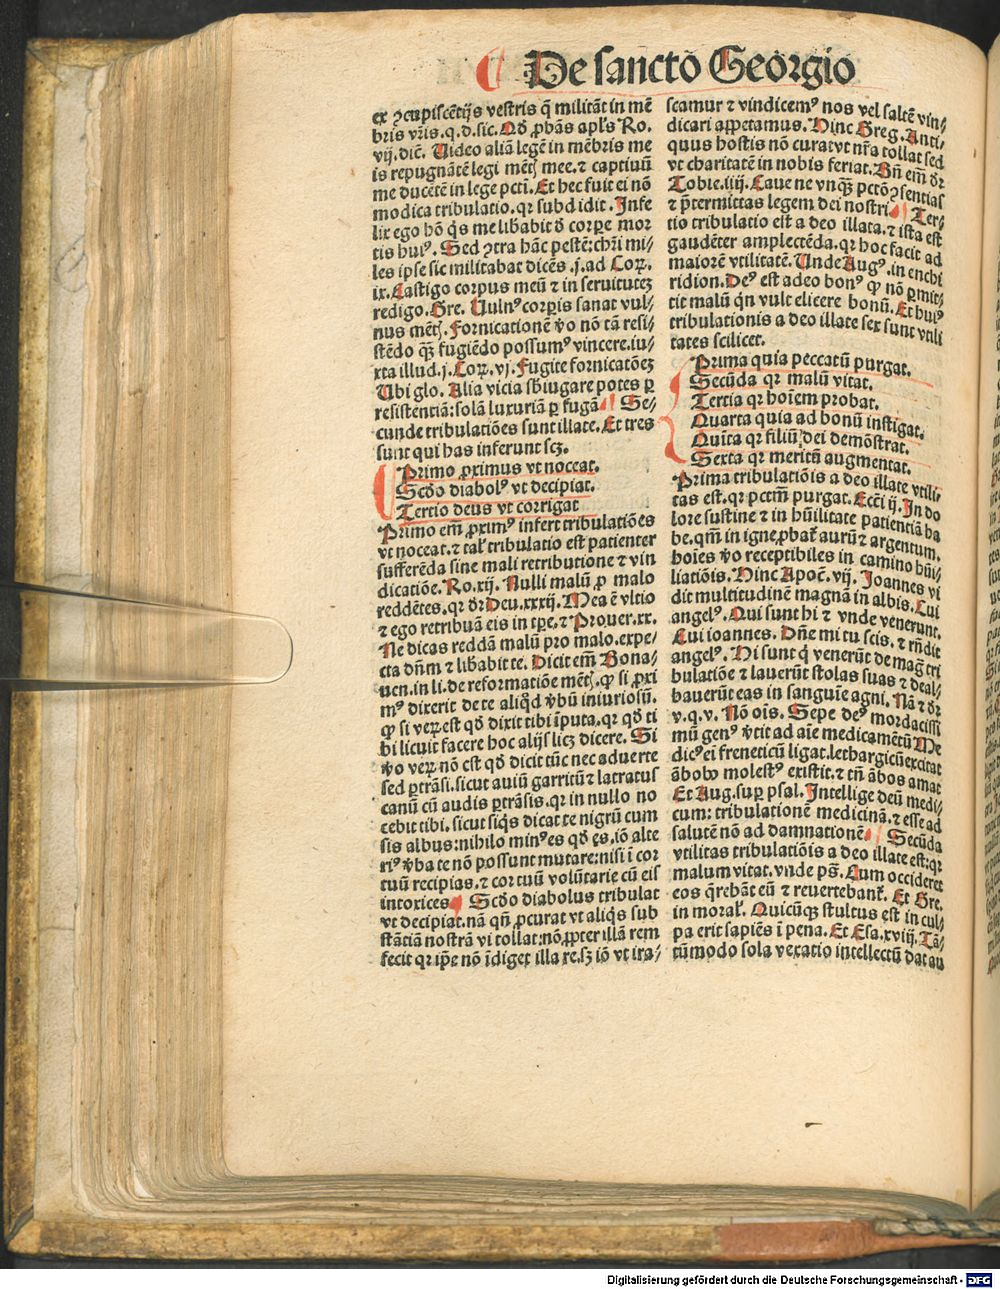 De sancto Georgio
ex ↄcupiscētijs vestris q̄ militāt in mē
bris vr̄is. q. d. sic. Qd̄ ꝓbās apl's Ro.
vij. dic̄. Uideo aliā legē in mēbris me
is repugnātē legi mēt mee. ⁊ captiuū
me ducētē in lege pctī. Et hec fuit ei nō
modica tribulatio. qr subdidit. Infe
lix ego hō q̄s me libabit d̄ corꝑe mor
tis huiꝰ. Sed ↄtra hāc pestē: chrī mi⸗
les ipse sic militabat dicēs. j. ad Coꝝ.
ix. Castigo corpus meū ⁊ in seruitutez
redigo. Gre. Uulnꝰ corꝑis sanat vul⸗
nus mēt. Fornicationē v̄o nō tā resi⸗
stēdo qꝫ fugiēdo possumꝰ vincere. iu⸗
xta illud. j. Coꝝ. vj. Fugite fornicatōez
Ubi glo. Alia vicia sb̄iugare potes ꝑ
resistentiā: solā luxuriā ꝑ fugā Se⸗
cunde tribulatiōes sunt illate. Et tres
sunt qui has inferunt scꝫ.
Primo ꝓximus vt noceat.
Scd̄o diabolꝰ vt decipiat.
Tertio deus vt corrigat
Primo em̄ ꝓximꝰ infert tribulatiōes
vt noceat. ⁊ tal' tribulatio est patienter
sufferēda sine mali retributione ⁊ vin
dicatiōe. Ro. xij. Nulli malū ꝓ malo
reddētes. qr dr̄ Deu. xxxij. Mea ē vltio
⁊ ego retribuā eis in tꝑe. ⁊ Prouer. xx.
Ne dicas reddā malū pro malo. expe⸗
cta dn̄m ⁊ libabit te. Dicit em̄ Bona⸗
uen. in li. de reformatiōe mēt. ꝙ si ꝓxi
mꝰ dixerit de te aliqd v̄bū iniuriosū.
ꝙ si veꝝ est qd̄ dixit tibi īputa. qr qd̄ ti
bi licuit facere hoc alijs licꝫ dicere. Si
v̄o veꝝ nō est qd̄ dicit tūc nec aduerte
sed ꝑtrāsi. sicut auiū garritū ⁊ latratus
canū cū audis ꝑtrāsis. qr in nullo no
cebit tibi. sicut siqs dicat te nigrū cum
sis albus: nihilo minꝰ es qd̄ es. iō alte
riꝰ v̄ba te nō possunt mutare: nisi ī cor
tuū recipias. ⁊ cor tuū volūtarie cū eis
intoxices Scd̄o diabolus tribulat
vt decipiat. nā qn̄ ꝓcurat vt aliqs sub
stātiā nostrā vi tollat: nō ꝓpter illā rem
fecit qr ip̄e nō īdiget illa re. sꝫ iō vt ira⸗
scamur ⁊ vindicemꝰ nos vel saltē vin⸗
dicari appetamus. Hinc Greg. Anti⸗
quus hostis nō curat vt nr̄a tollat sed
vt charitatē in nobis feriat. Bn̄ em̄ dr̄
Tobie. iiij. Caue ne vnqꝫ pctō ↄsentias
⁊ p̄termittas legem dei nostri Ter⸗
tio tribulatio est a deo illata. ⁊ ista est
gaudēter amplectēda. qr hoc facit ad
maiorē vtilitatē. Unde Augꝰ. in enchi
ridion. Deꝰ est adeo bonꝰ ꝙ nō ꝑmit⸗
tit malū qn̄ vult elicere bonū. Et huiꝰ
tribulationis a deo illate sex sunt vtili
tates scilicet.
Prima quia peccatū purgat.
Secūda qr malū vitat.
Tertia qr hoīem probat.
Quarta quia ad bonū instigat.
Quīta qr filiū dei demōstrat.
Sexta qr meritū augmentat.
Prima tribulatiōis a deo illate vtili⸗
tas est. qr pctm̄ purgat. Ecc̄i ij. In do
lore sustine ⁊ in hūilitate patientiā ha
be. qm̄ in igne ꝓbat' aurū ⁊ argentum.
hoīes v̄o receptibiles in camino hūi⸗
liatiōis. Hinc Apoc̄. vij. Joannes vi
dit multitudinē magnā in albis. Cui
angelꝰ. Qui sunt hi ⁊ vnde venerunt.
Cui ioannes. Dn̄e mi tu scis. ⁊ rn̄dit
angelꝰ. Hi sunt q̄ venerūt de maḡ tri
bulatiōe ⁊ lauerūt stolas suas ⁊ deal⸗
bauerūt eas in sanguīe agni. Nā ⁊ dr̄
v. q. v. Nō oīs. Sepe deꝰ mordacissi
mū genꝰ v̄tit ad aīe medicamētū Me
dicꝰ ei freneticū ligat. lethargicū excitat
ābobꝰ molestꝰ existit. ⁊ tn̄ ābos amat
Et Aug. suꝑ psal. Intellige deū medi⸗
cum: tribulationē medicinā. ⁊ esse ad
salutē nō ad damnationē Secūda
vtilitas tribulatiōis a deo illate est: qr
malum vitat. vnde ps̄. Cum occideret
eos q̄rebāt eū ⁊ reuertebant'. Et Gre.
in moral'. Quicūqꝫ stultus est in cul⸗
pa erit sapiēs ī pena. Et Esa. xviij. Tā⸗
tūmodo sola vexatio intellectū dat au
Digitalisierung gefördert durch die Deutsche Forschungsgemeinschaft - DFG